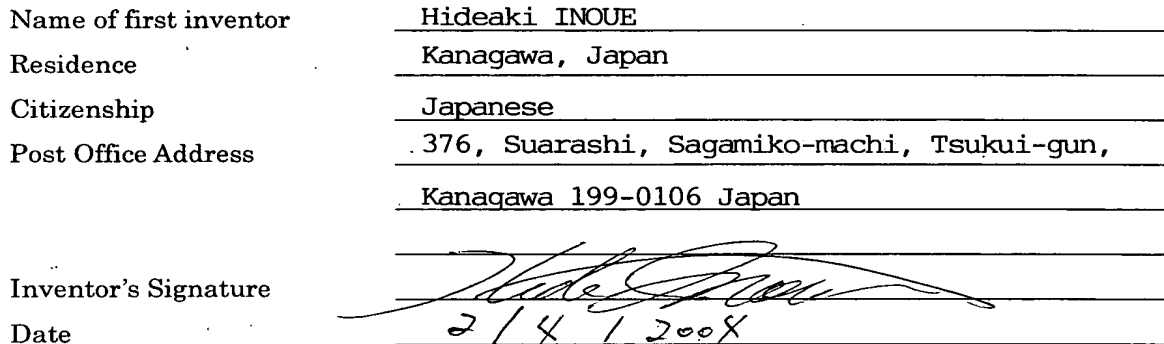 Name of first inventor Hideaki INOUE
Residence Kanagawa, Japan
Citizenship Japanese
Post Office Address 376, Suarashi, Sagamiko-machi, Tsukui-gun,
Kanagawa 199-0106 Japan
Inventor's Signature
Date 2/4/2004